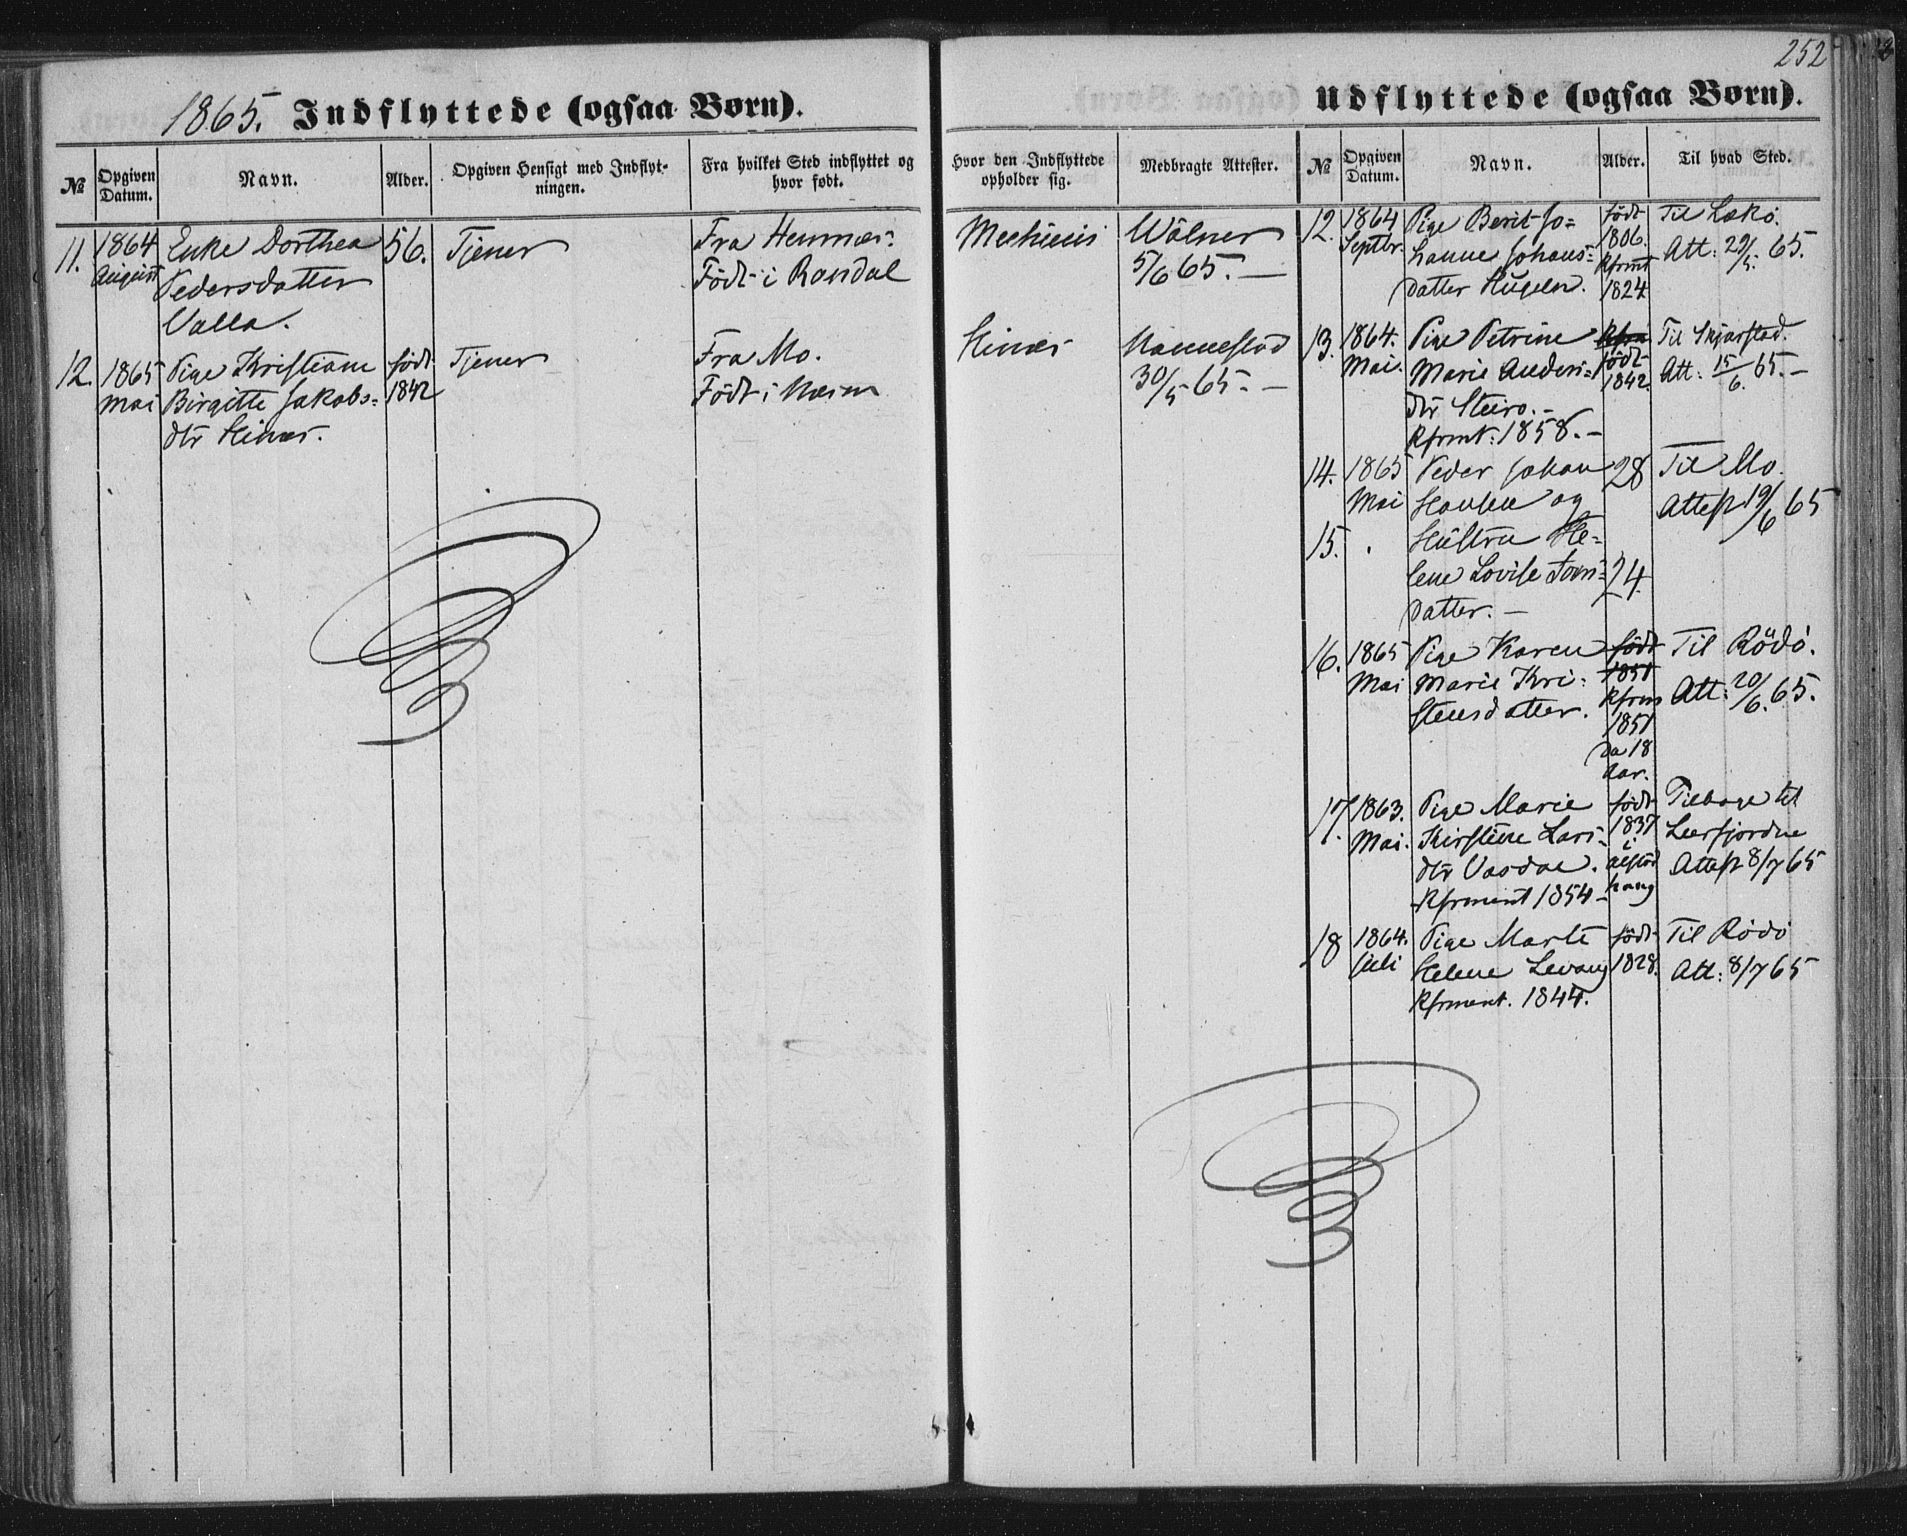 252
1865. Indflyttede (ogsaa Børn).
№
Opgiven Datum.
Navn.
Alder.
Opgiven Hensigt med Indflyt-
ningen.
Fra hvilket Sted indflyttet og
hvor født.
Hvor den Indflyttede
opholder sig.
Medbragte Attester.
11.
1864
August
Enke Dorthea
Pedersdatter
Valla.
56.
Tjener
Fra Hemnæs.
Födt i Randal
5/6 65. —
12.
1865
Mai
Pige Kristiane
Birgitte Jakobs-
dtr Hinæs.
födt
1842
Tjener
Fra Mo.
Födt i Næsna
Hinæs
30/5 65. —
Udflyttede (ogsaa Børn).
№
Opgiven
Datum.
Navn.
Alder.
Til hvad Sted.
12.
1864
Septbr.
Pige Berit Jo-
hanne Johans-
datter Hugeln.
födt
1806.
Kfrmt
1824
Til Lekö.
Att: 29/5. 65.
13.
1864.
Mai.
Pige Petrine
Marie Anders-
dtr Steiro.-
Kfrmt: 1858. —
födt
1842.
Til Skjerstad.
Att: 15/6. 65. —
14.
1865
Mai
Peder Johan
Hansen og
28
Til Mo.
Attest 19/6 65
15.
Hustru He-
lene Lovise Tom-
datter. —
24
16.
1865
Mai
Pige Karen
Marie Kri-
stensdatter.
födt
1851
Kfrm
1851
da 18
Aar.
Til Rödö.
Att: 20/6. 65.
17.
1863.
Mai.
Pige Marie
Kirstine Lars-
dtr Vasdal.
Kfrment 1854 —
födt
1837
i
Alstad
houg
Tilbage til
Leerfjorden
Attest 8/7 65
18
1864.
Juli
Pige Marte
Helene Levang
Kfrment. 1844.
födt
1828.
Til Rödö
Att: 8/7 65